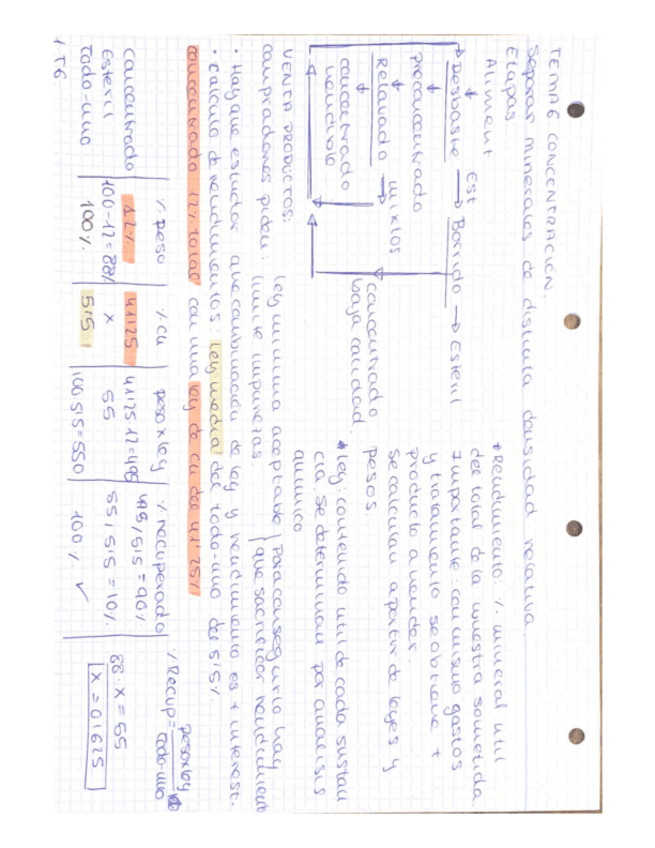 TEMA 6 CONCENTRACIÓN.
Separar minerales de distinta densidad relativa.
Etapas:
Aliment
Desbaste → Est Barrido → Esteril
preconcentrado
Relavado → mixtos
concentrado vendible
concentrado baja calidad.
* Rendimiento: % mineral util
del total de la muestra sometida.
Importante: con mismo gastos
y tratamiento se obtiene +
producto a vender.
Se calculan a partir de leyes y
pesos.
* Ley: contenido util de cada sustan
cia se determinan por analisis
quimico
VENTA PRODUCTOS:
compradores piden: ley minima aceptable
limite impurezas.
Para conseguirlo hay
que sacrificar rendimient
• Hay que estudiar que combinación de ley y rendimiento es + interest.
• calculo de rendimientos: ley media del todo-uno del 5'5%.
concentrado 12% total con una ley de cu del 41'25%
% peso | % cu | peso x ley | % recuperado
concentrado | 12% | 41'25 | 41'25·12=495 | 495/5'5=90%
Esteril | 100-12=88% | x | 55 | 55/5'5=10%
Todo-uno | 100% | 5'5 | 100·5'5=550 | 100% ✓
% Recup = peso x ley / todo-uno
88·x=55
x=0'625
1.T6.